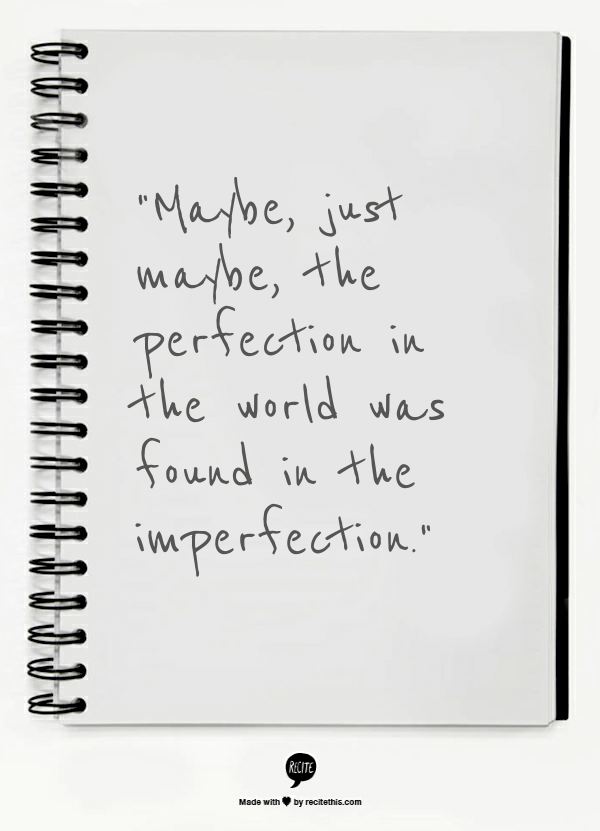 "Maybe, just
maybe, the
perfection in
the world was
found in the
imperfection."
RECITE
Made with ♥ by recitethis.com